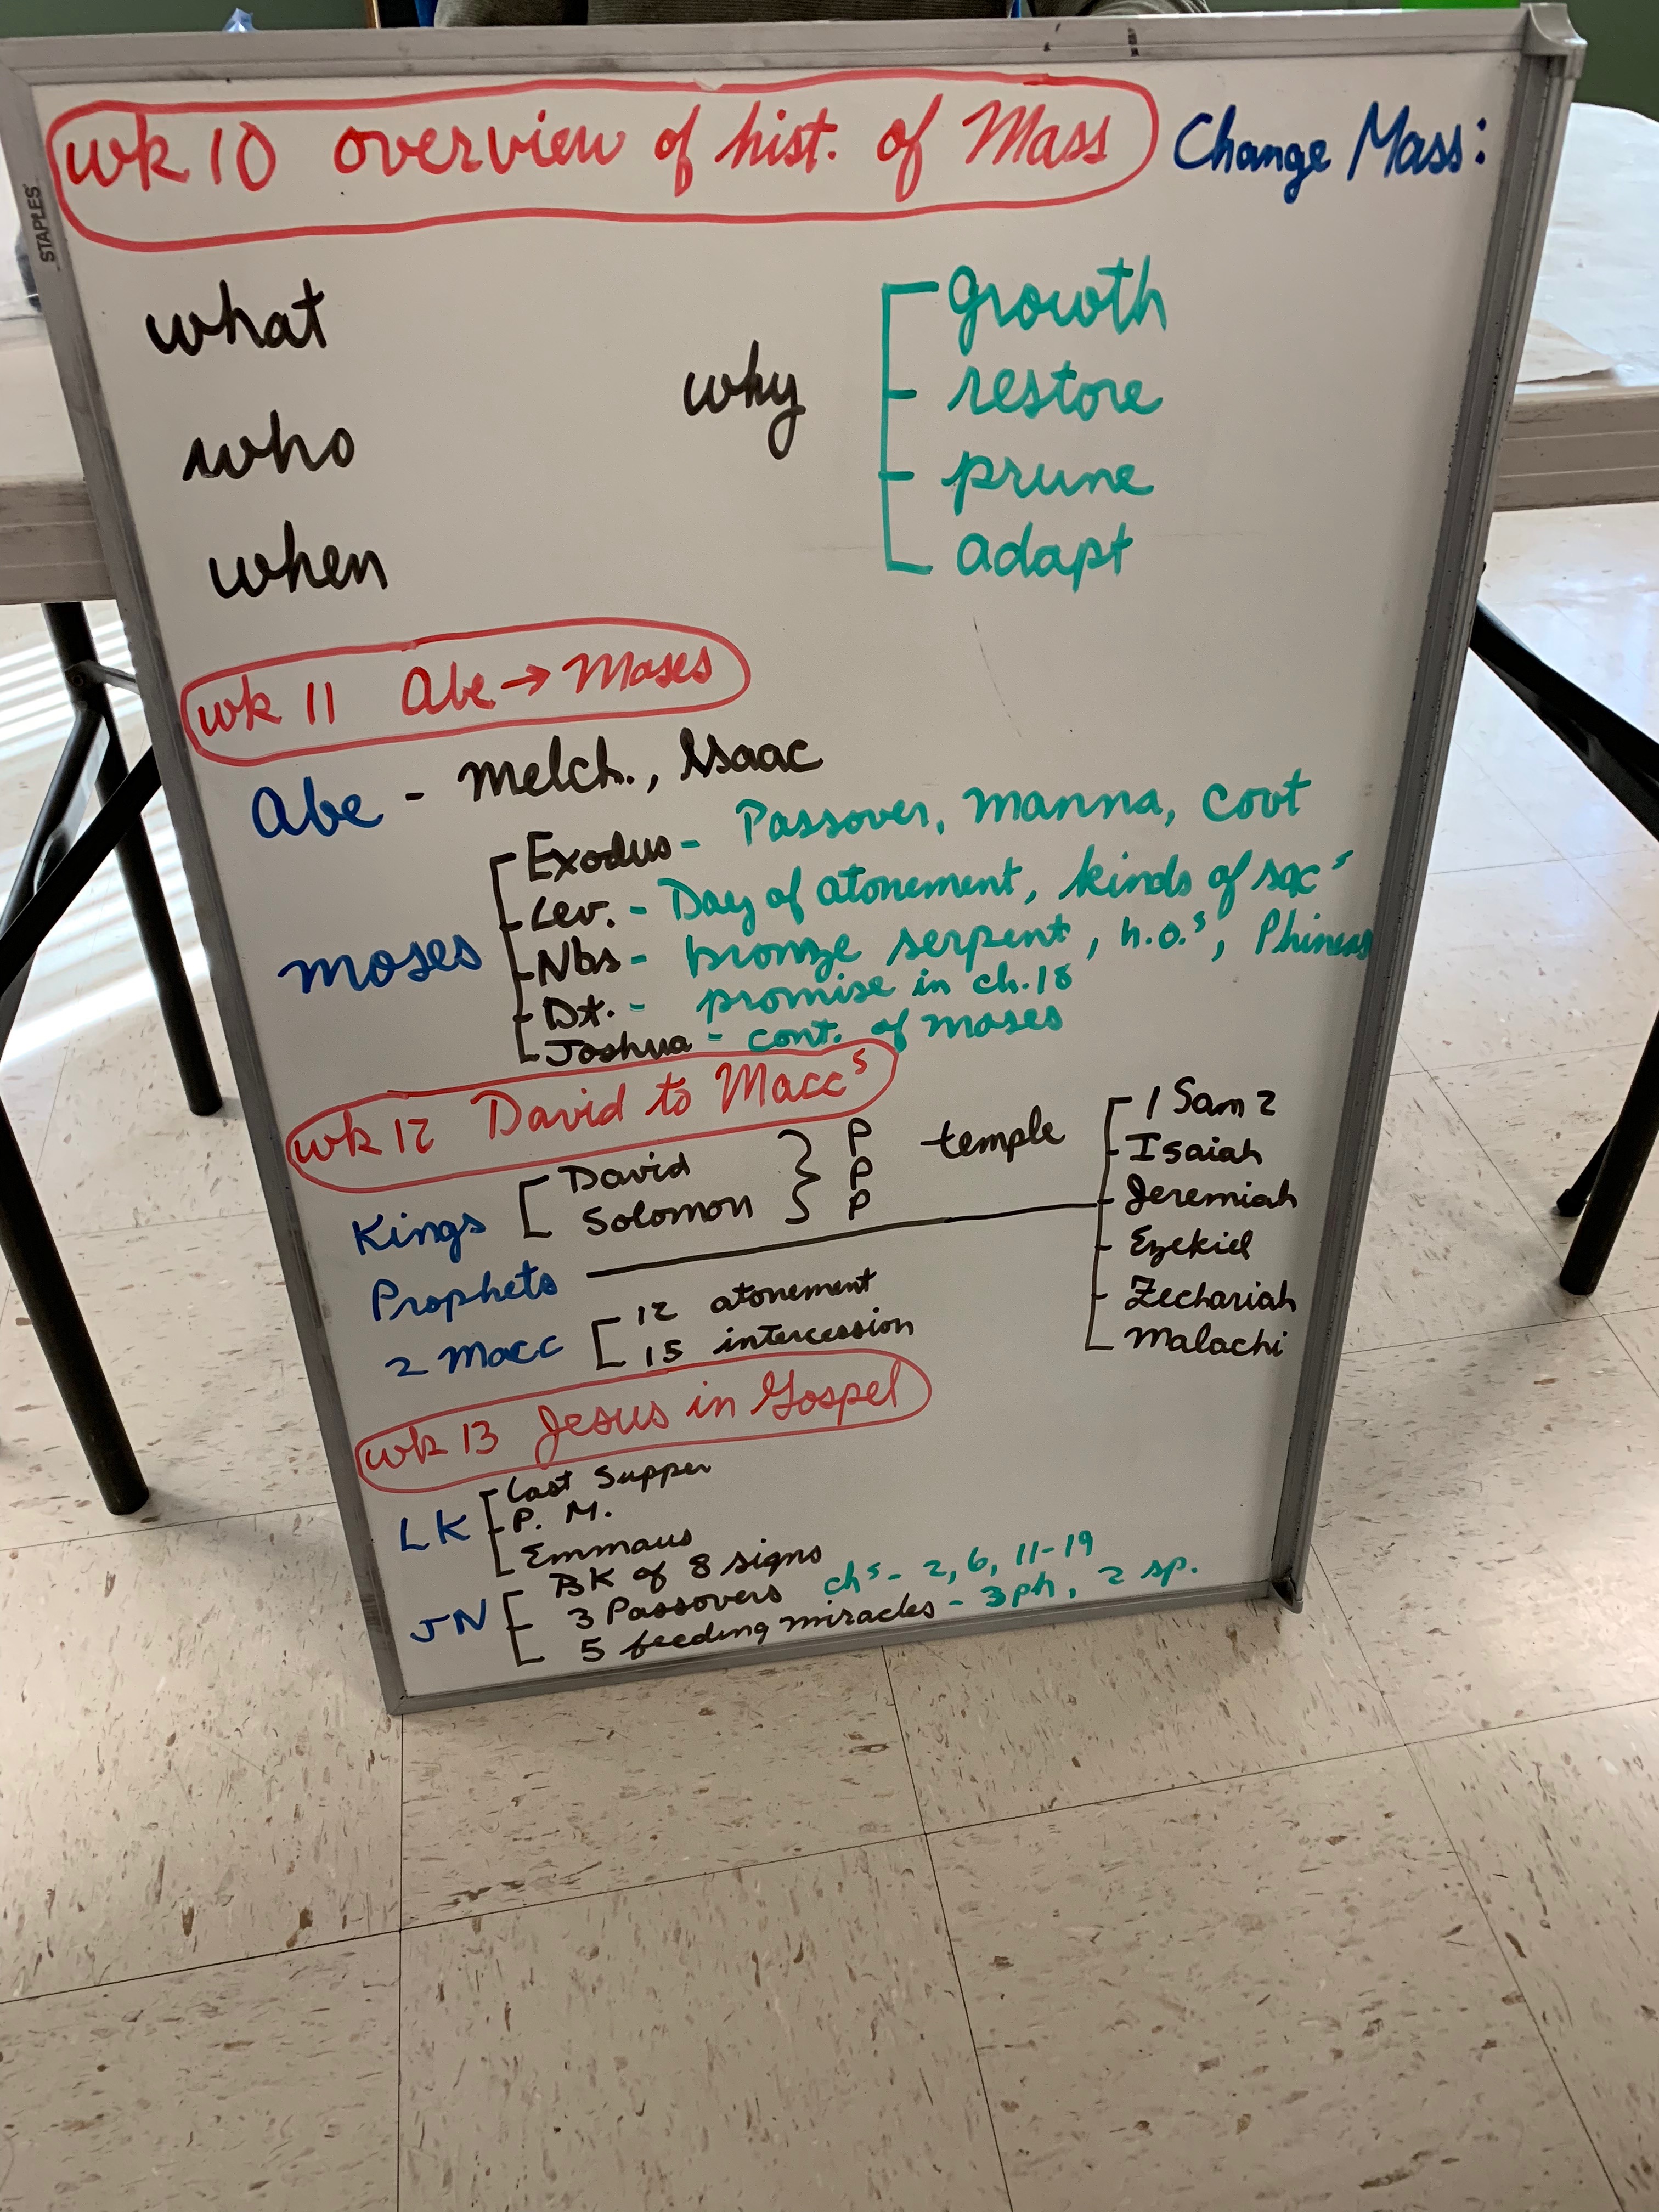 wk 10 overview of hist. of Mass Change Mass:
STAPLES
what
who
when
why
growth
restore
prune
adapt
wk 11 Abe → Moses
Abe - Melch., Isaac
Moses
Exodus - Passover, manna, covt
Lev. - Day of atonement, kinds of sac s
Nbs - bronze serpent, h.o.s, Phineas
Dt. - promise in ch. 18
Joshua - cont. of Moses
wk 12 David to Macc s
Kings
David
Solomon
P
P
P
temple
Prophets
1 Sam 2
Isaiah
Jeremiah
Ezekiel
Zechariah
Malachi
2 Macc
12 atonement
15 intercession
wk 13 Jesus in Gospel
LK
Last Supper
P. M.
Emmaus
JN
BK of 8 signs
3 Passovers ch s - 2, 6, 11-19
5 feeding miracles - 3 ph, 2 sp.